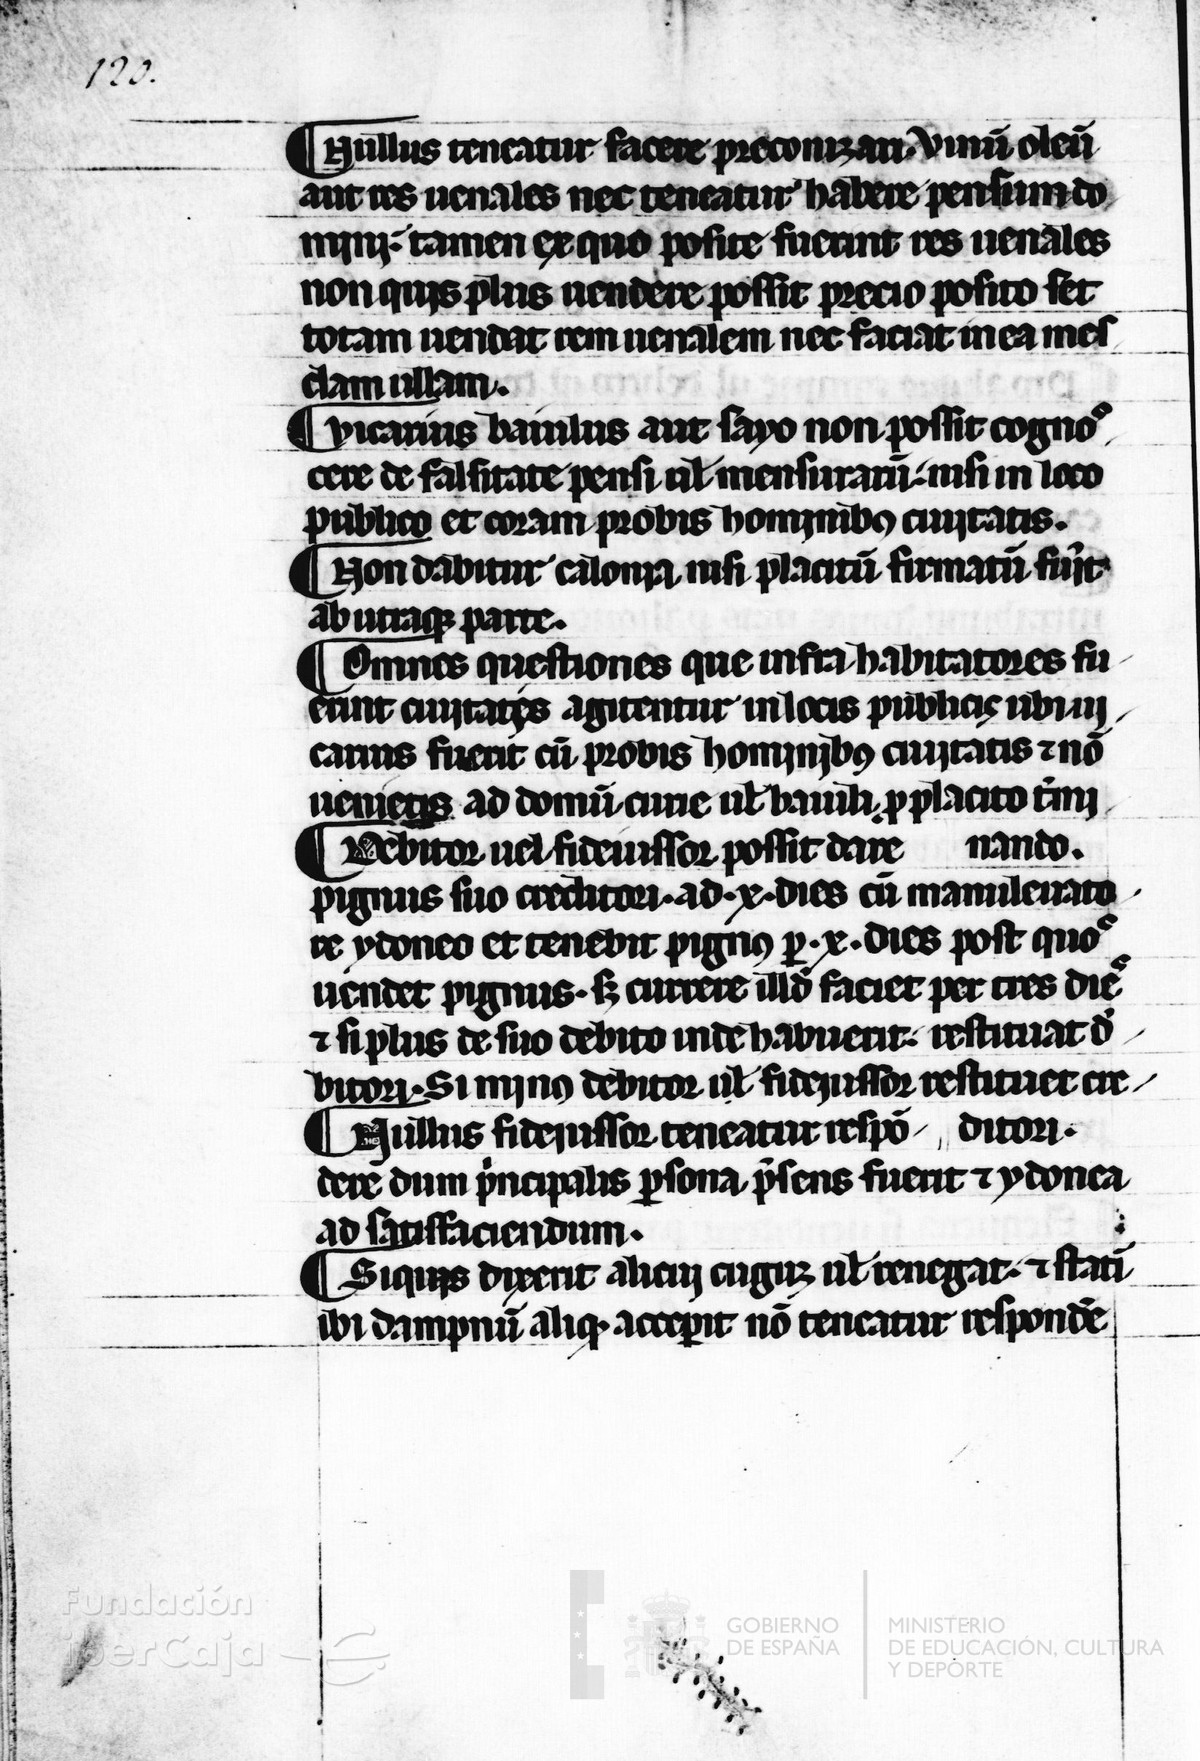 120.
¶ Nullus teneatur facere preconizari. Vinū oleū
aut res uenales nec teneatur habere pensum do
minj. tamen ex quo posite fuerint res uenales
non quis plus uendere possit precio posito set
totam uendat rem uenalem nec faciat in ea mes
clam ullam.
¶ vicarius baiulus aut sayo non possit cognos
cere de falsitate pensi ul̄ mensurarū. nisi in loco
publico et coram probis hominibꝯ ciuitatis.
¶ Non dabitur calonja nisi placitū firmatū fu'it
ab utraqꝫ parte.
¶ Omnes questiones que infra habitatores fu
erint ciuitates agitentur in locis publicis ubi ui
carius fuerit cū probis hominibꝯ ciuitatis ⁊ nō
ueniet ad domū curie ul̄ baiuli ꝓ placito t'mi
nando.
¶ Debitor uel fideiussor possit dare
pignus suo creditori. ad .x. dies cū manuleuato
re ydoneo et tenebit pignꝯ ꝑ .x. dies post quos
uendet pignus. sꝫ currere illd̄ faciet per tres dies
⁊ si plus de suo debito inde habuerit. restituat d'
bitori. Si minꝯ debitor ul̄ fideiussor restituet cre
ditori.
¶ Nullus fideiussor teneatur respō
dere dum p'ncipalis ꝑsona p̄sens fuerit ⁊ ydonea
ad satisfaciendum.
¶ Siquis dixerit alicui cuguz ul̄ renegat. ⁊ statī
ibi dampnū aliqꝫ acceꝑit nō teneatur respondē
Fundación
iberCaja
GOBIERNO
DE ESPAÑA
MINISTERIO
DE EDUCACIÓN, CULTURA
Y DEPORTE